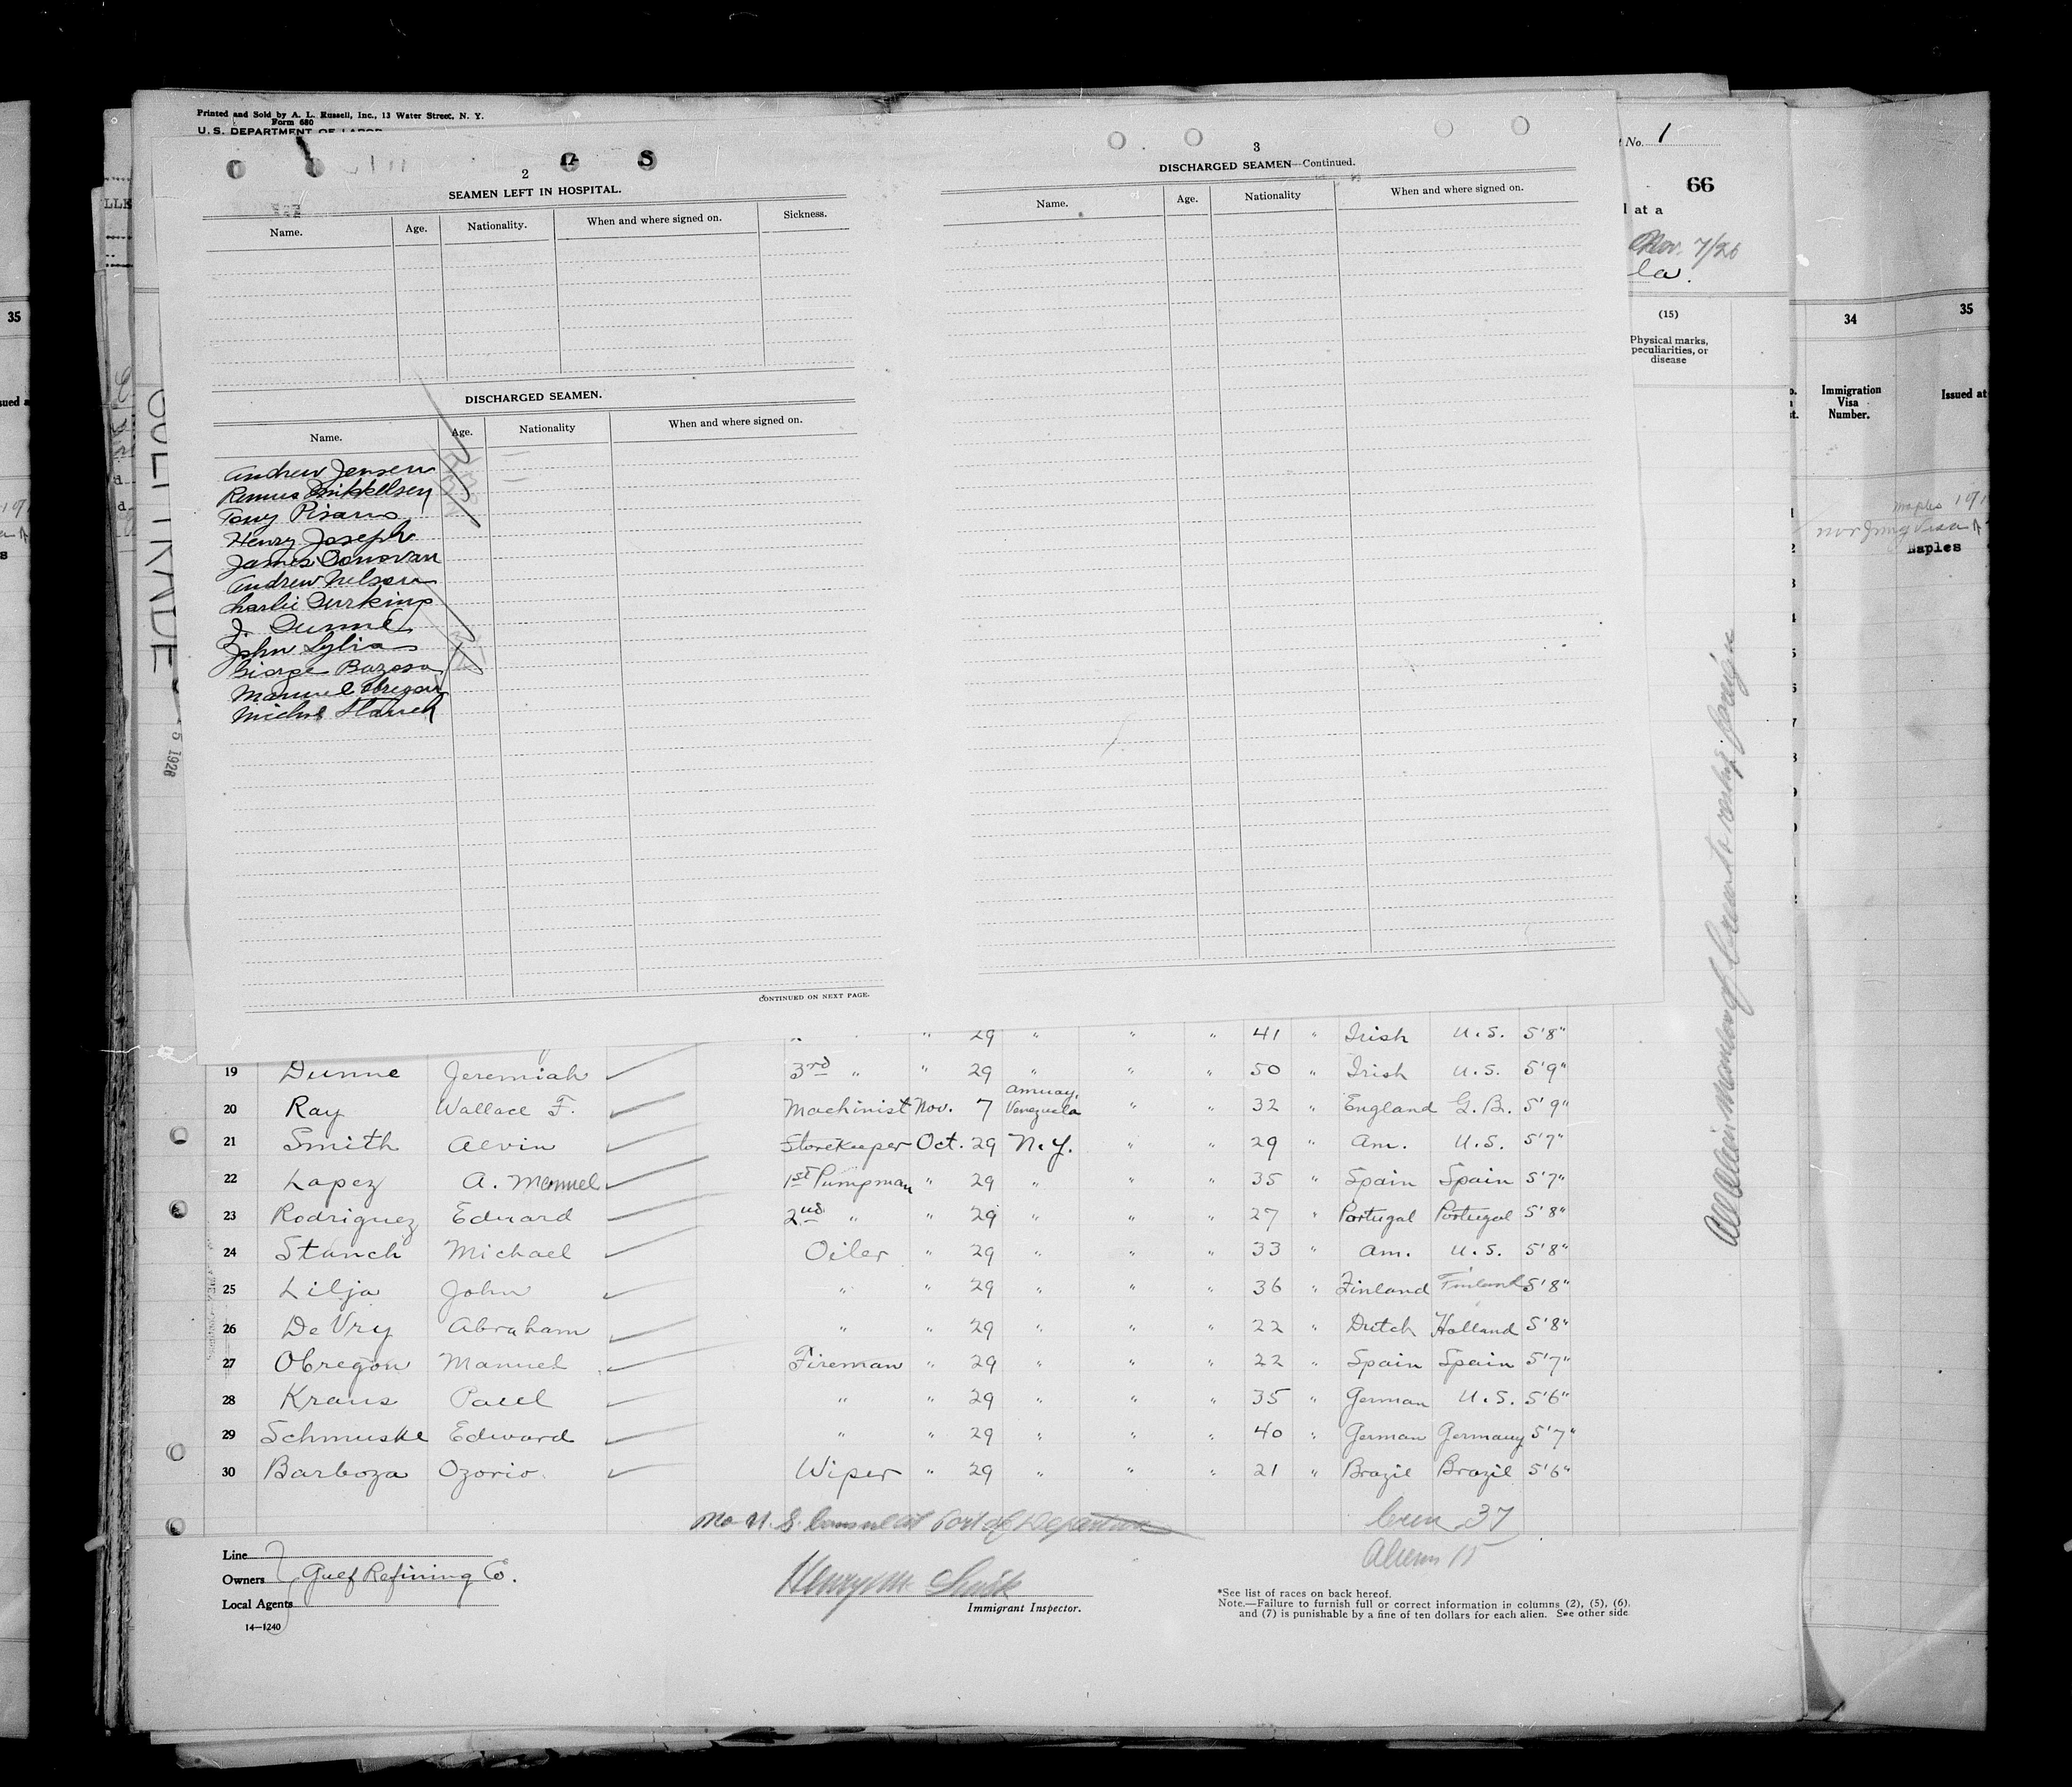 Printed and Sold by A. L. Russell, Inc., 13 Water Street, N. Y.
Form 680
U. S. DEPARTMENT OF LABOR
2
SEAMEN LEFT IN HOSPITAL.
Name. Age. Nationality. When and where signed on. Sickness.
DISCHARGED SEAMEN.
Name. Age. Nationality When and where signed on.
Andrew Jensen
Rasmus Mikkelsen
Tony Pisano
Henry Joseph
James Donovan
Andrew Nelson
Charlie Durkins
J. Dunne
John Lylia
George Bazosa
Manuel Obregon
Michel Stanch
CONTINUED ON NEXT PAGE.
3
DISCHARGED SEAMEN—Continued.
Name. Age. Nationality When and where signed on.
No. 1
66
l at a
Nov. 7/26
la.
(15)
Physical marks, peculiarities, or disease
34
35
Immigration Visa Number.
Issued at
Naples
35
sued a
5 1926
" " 29 " " " 41 " Irish U.S. 5'8"
19 Dunne Jeremiah 3rd " " 29 " " " 50 " Irish U.S. 5'9"
20 Ray Wallace F. Machinist Nov. 7 Amuay, Venezuela " " 32 " England G.B. 5'9"
21 Smith Alvin Storekeeper Oct. 29 N.Y. " " 29 " Am. U.S. 5'7"
22 Lapez A. Manuel 1st Pumpman " 29 " " " 35 " Spain Spain 5'7"
23 Rodriguez Edward 2nd " " 29 " " " 27 " Portugal Portugal 5'8"
24 Stanch Michael Oiler " 29 " " " 33 " Am. U.S. 5'8"
25 Lilja John " " 29 " " " 36 " Finland Finland 5'8"
26 De Vry Abraham " " 29 " " " 22 " Dutch Holland 5'8"
27 Obregon Manuel Fireman " 29 " " " 22 " Spain Spain 5'7"
28 Kraus Paul " " 29 " " " 35 " German U.S. 5'6"
29 Schmuske Edward " " 29 " " " 40 " German Germany 5'7"
30 Barboza Ozorio Wiper " 29 " " " 21 " Brazil Brazil 5'6"
No U.S. Consul at Port of Departure
Crew 37
Aliens 15
Line
Owners Gulf Refining Co.
Local Agents
14—1240
Henry M. Smith
Immigrant Inspector.
*See list of races on back hereof.
Note.—Failure to furnish full or correct information in columns (2), (5), (6), and (7) is punishable by a fine of ten dollars for each alien. See other side
All Alien Members of Crew